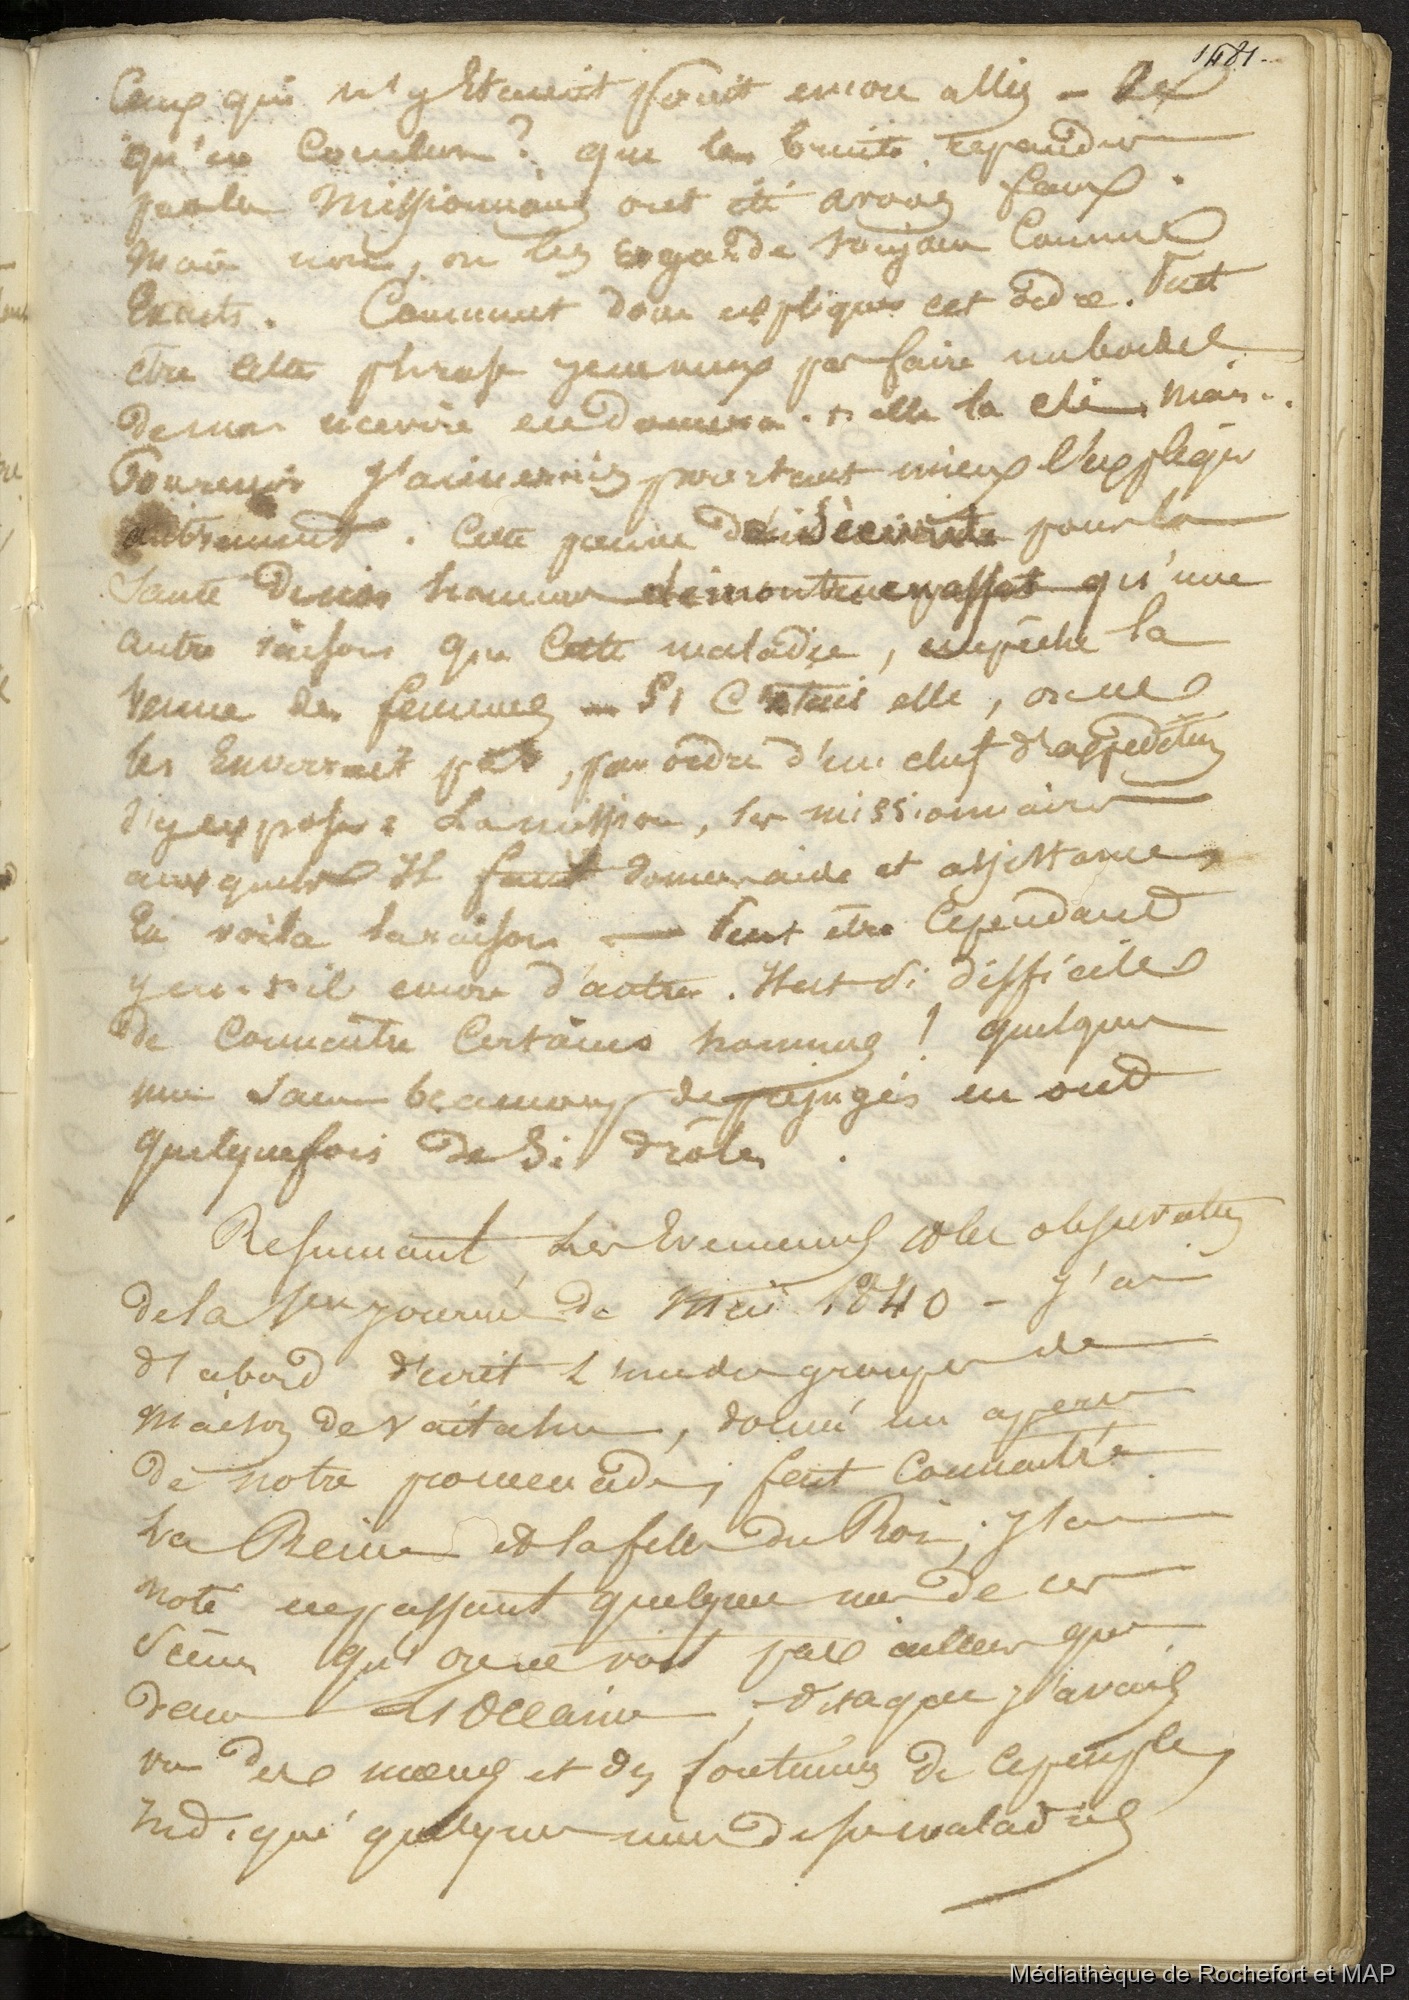 1481.
Ceux qui n'y étaient point encore allés -
qu'en conclure? que les bruits répandus
par les missionnaires ont été avoués faux.
Mais non, on les regarde toujours comme
exacts. Comment donc expliquer cet ordre. Peut
être cette phrase je ne veux pas faire un bordel
de mon navire en donnera-t-elle la clé, mais..
J'aimerais pourtant mieux l'expliquer
autrement. Cette pour la
santé de nos hommes démontrer assez qu'une
autre raison que cette maladie, empêche la
venue des femmes - Si c'était elle, on ne
les enverrait pas, par ordre d'un chef d'expédition
s'y exposer à la mission, les missionnaires
auxquels il faut donner aide et assistance,
En voilà la raison — Peut être cependant
y en a-t-il encore d'autres. Il est si difficile
de connaître certains hommes! quelques
uns sans beaucoup de préjugés en ont
quelquefois de si drôles.
Resumant, les Evenemens et les observations
de la journée de Mai 1840 - j'ai
d'abord décrit l'un des groupes de
Maisons de Vaïtahu, donné un aperçu
de notre promenade, fait connaître
La Reine et la fille du Roi; j'ai
noté en passant quelques unes de ces
scènes qu'on ne voit pas ailleurs que
dans L'Océanie, dit ce que j'avais
vu des mœurs et des coutumes de ce peuple,
Indiqué quelques unes de ses maladies
Médiathèque de Rochefort et MAP